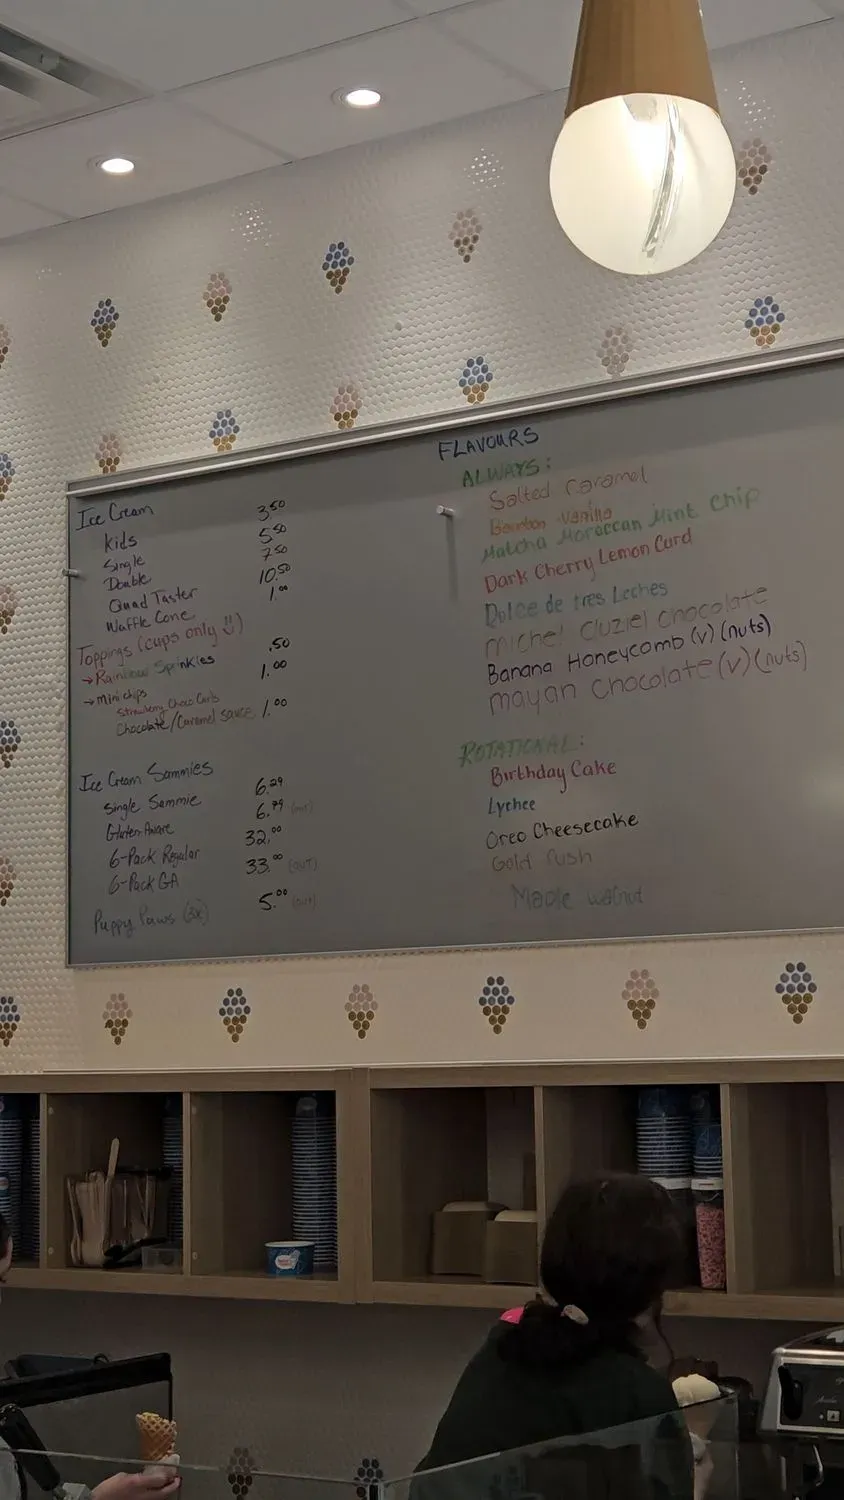 Ice Cream
Kids 3.50
Single 5.50
Double 7.50
Quad Taster 10.50
Waffle Cone 1.00
Toppings (cups only)
→ Rainbow Sprinkles .50
→ mini chips 1.00
Strawberry Choco Curls
Chocolate/Caramel sauce 1.00
Ice Cream Sammies
Single Sammie 6.29
Gluten Aware 6.79 (OUT)
6-Pack Regular 32.00
6-Pack GA 33.00 (OUT)
Puppy Paws 5.00 (OUT)
FLAVOURS
ALWAYS:
Salted Caramel
Bourbon Vanilla
Matcha Moroccan Mint Chip
Dark Cherry Lemon Curd
Dolce de tres Leches
Michel Cluziel Chocolate
Banana Honeycomb (v) (nuts)
mayan Chocolate (v) (nuts)
ROTATIONAL:
Birthday Cake
Lychee
Oreo Cheesecake
Gold rush
Maple walnut